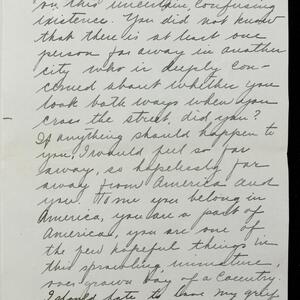 on this uncertain, confusing
existence. You did not know
that there is at least one
person far away in another
city who is deeply con-
cerned about whether you
look both ways when you
cross the street, did you?
If anything should happen to
you, I would feel so far
away, so hopelessly far
away from America and
you. To me you belong in
America, you are a part of
America, you are one of
the few hopeful things in
this sprawling, immature,
over grown boy of a country.
I should hate to lose my grip